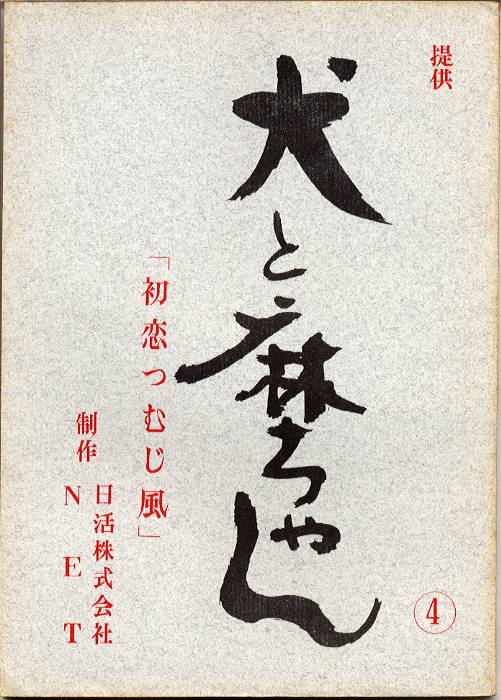 提供
犬と麻ちゃん
④
「初恋つむじ風」
制作
日活株式会社
NET